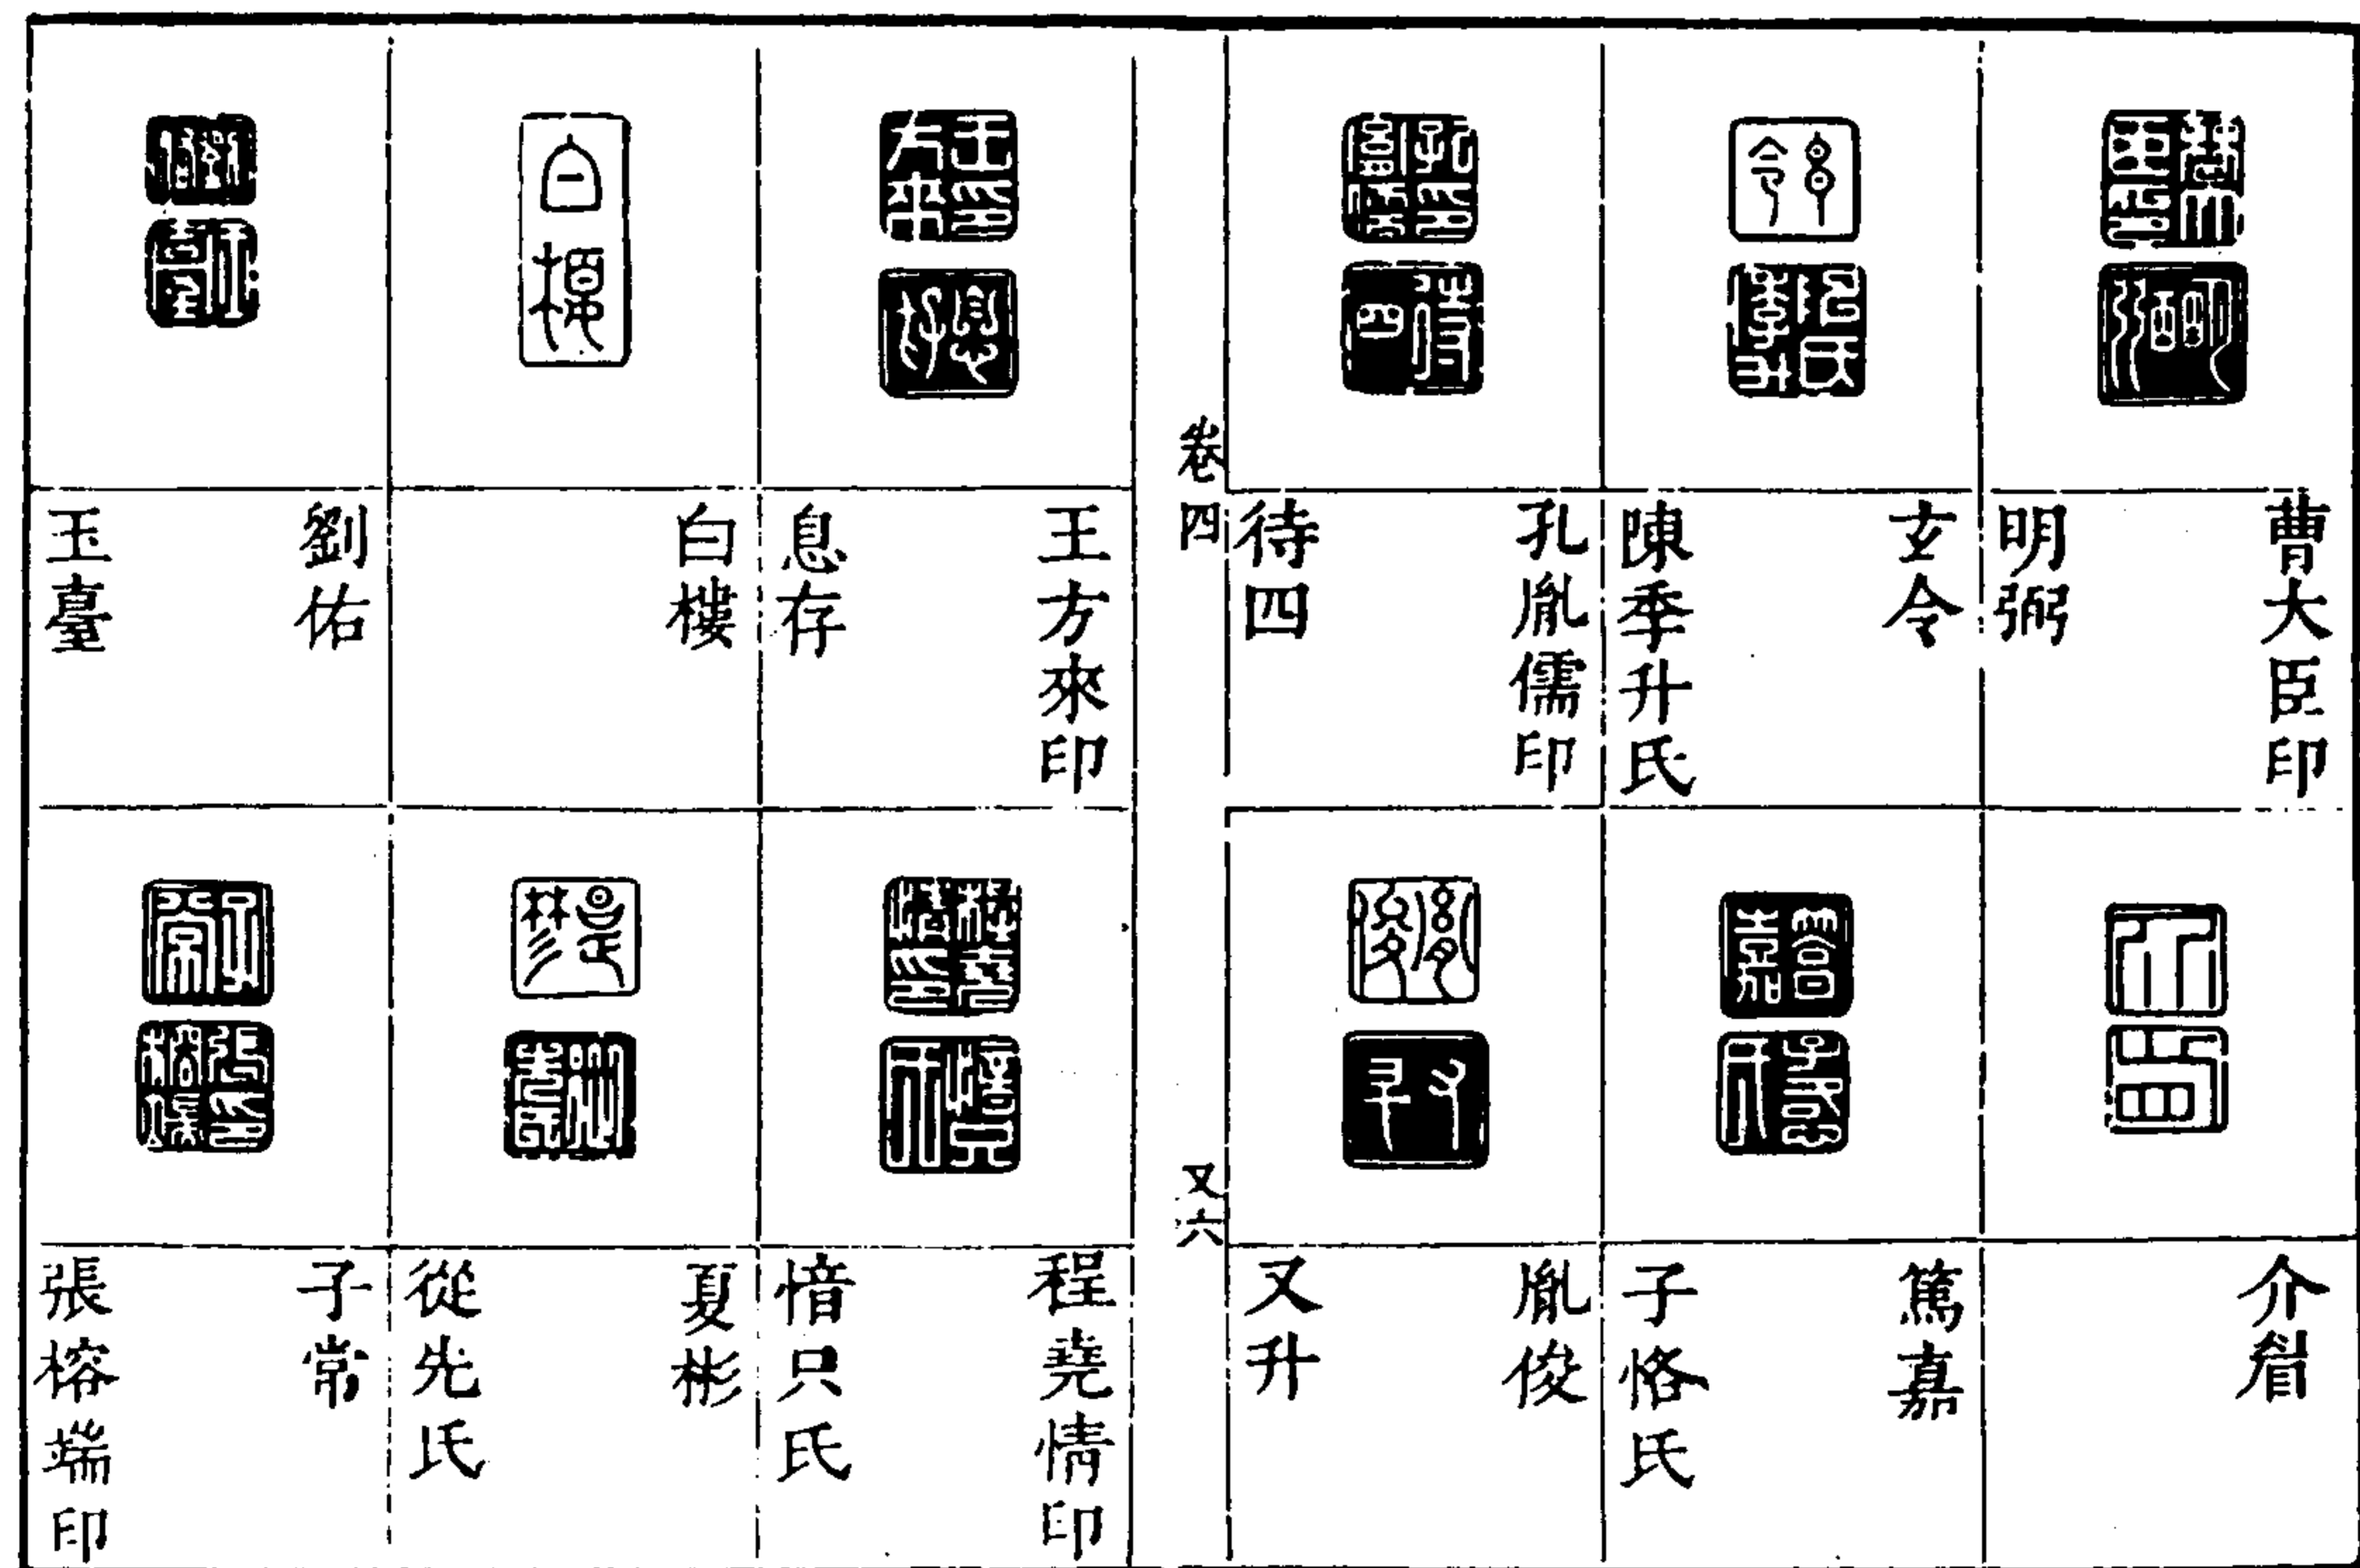 曹大臣印
明弼
玄令
陳季升氏
孔胤儒印
待四
介眉
篤嘉
子恪氏
胤俊
又升
卷四
又六
王方來印
息存
白樓
劉佑
玉臺
程堯情印
愔只氏
夏彬
從先氏
子常
張榕端印